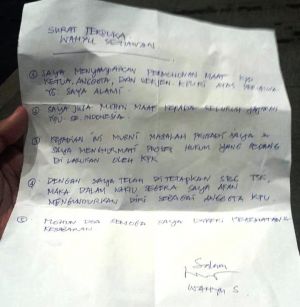 SURAT TERBUKA
WAHYU SETIAWAN
① SAYA MENYAMPAIKAN PERMOHONAN MAAF KPD
KETUA, ANGGOTA, DAN SEKJEN KPU RI ATAS PERISTIWA
YG SAYA ALAMI
② SAYA JUGA MOHON MAAF KEPADA SELURUH JAJARAN
KPU SE-INDONESIA.
③ KEJADIAN INI MURNI MASALAH PRIBADI SAYA &
SAYA MENGHORMATI PROSES HUKUM YANG SEDANG
DI LAKUKAN OLEH KPK
④ DENGAN SAYA TELAH DITETAPKAN SBG TSK,
MAKA DALAM WAKTU SEGERA SAYA AKAN
MENGUNDURKAN DIRI SEBAGAI ANGGOTA KPU
⑤ MOHON DOA SEMOGA SAYA DIBERI KESEHATAN &
KESABARAN
Salam
WAHYU S.